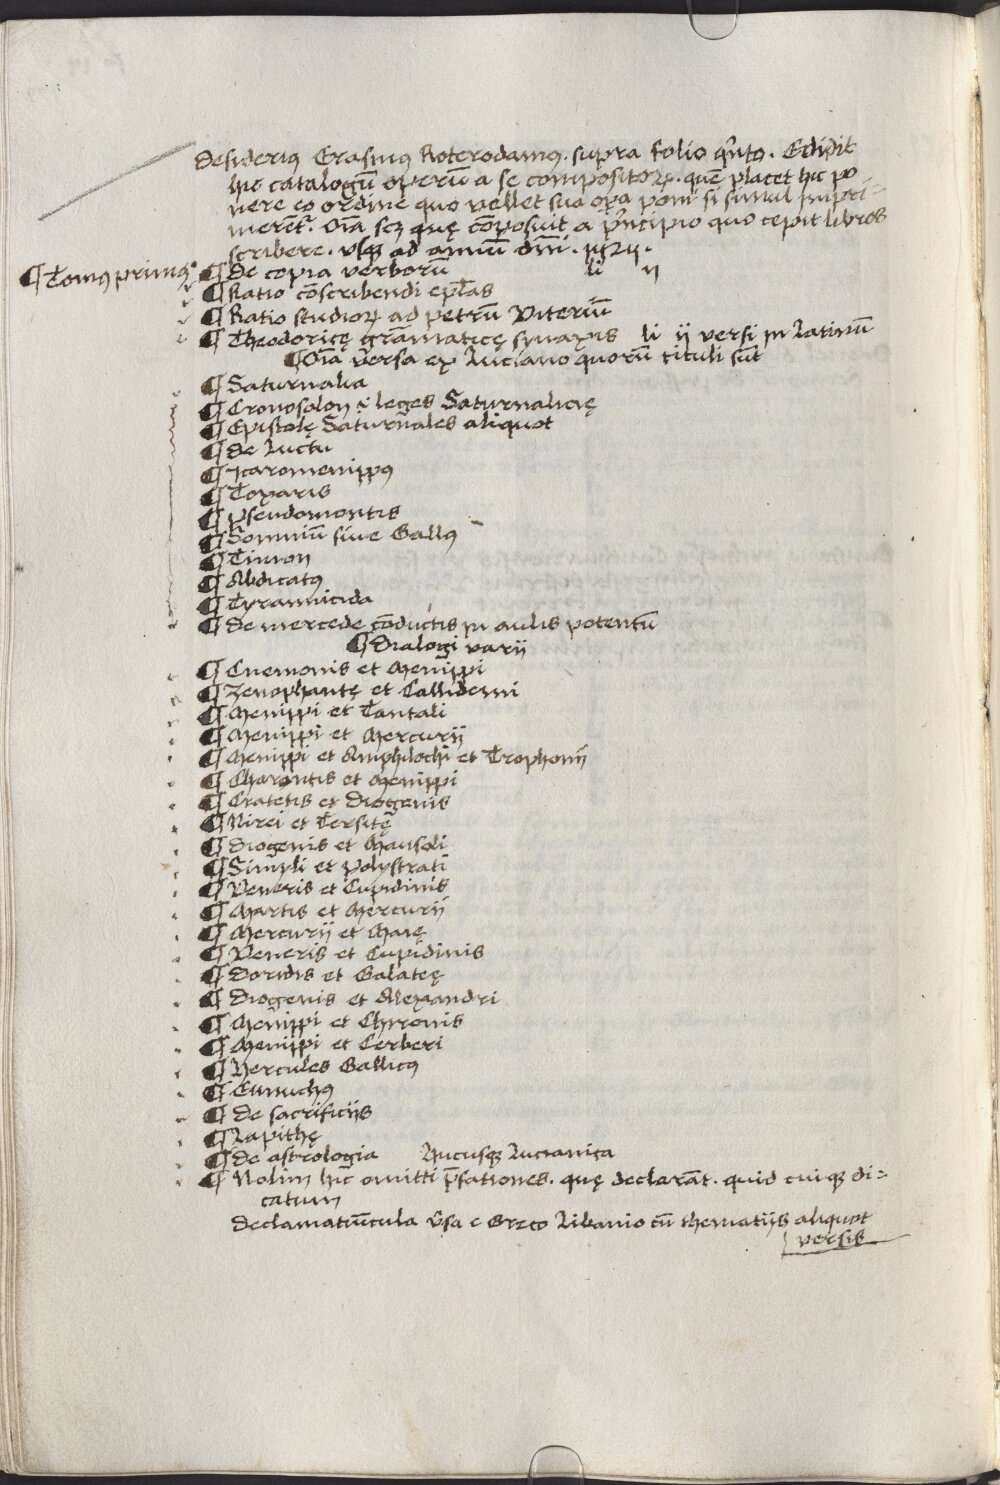 Desiderius Erasmus Roterodamus . supra folio qͥnto . Edidit
hic catalogū operū a se compositoꝝ . quē placet hic po
nere eo ordine quo vellet sua oꝑa poni si simul impri=
merēt᷑ . Oīa scꝫ quę cōposuit a pͥncipio quo cepit libros
scribere . vsqꝫ ad annū dīn . 1524 .
¶ Tomus primus
¶ De copia verborū li ij
¶ Ratio cōscribendi ep̄l̄as
¶ Ratio studioꝝ ad petrū Viteriū
¶ Theodoricę grāmaticę synaxis li ij versi in latinū
¶ Oīa v̄sa ex Luciano quorū tituli sūt
¶ Saturnalia
¶ Cronosolon .i. leges Saturnalicię
¶ Epistolę Saturnales aliquot
¶ De Luctu
¶ Icaromenippus
¶ Toxaris
¶ Pseudomontis
¶ Somniū sive Gallus
¶ Timon
¶ Abdicatus
¶ Tyrannicida
¶ De mercede cōductis in aulis potentū
¶ Dialogi varij
¶ Cnemonis et Menippi
¶ Zenophantę et Callidemi
¶ Menippi et Tantali
¶ Menippi et Mercurij
¶ Menippi et Amphilochi et Trophonij
¶ Charontis et Menippi
¶ Cratetis et Diogenis
¶ Nirei et Tersitę
¶ Diogenis et Mausoli
¶ Simyli et Polystrati
¶ Veneris et Cupidinis
¶ Martis et Mercurij
¶ Mercurij et Maię
¶ Veneris et Cupidinis
¶ Doridis et Galateę
¶ Diogenis et Alexandri
¶ Menippi et Chyronis
¶ Menippi et Cerberi
¶ Hercules Gallicus
¶ Eunuchus
¶ De sacrificijs
¶ Lapithę
¶ De astrologia Hucusqꝫ Lucianica
¶ Nolim hīc omitti p̄fationes . quę declarāt . quid cuiqꝫ di=
catum
Declamatiūcula v̄sa e Greco Libanio cū thematijs aliquot
versis